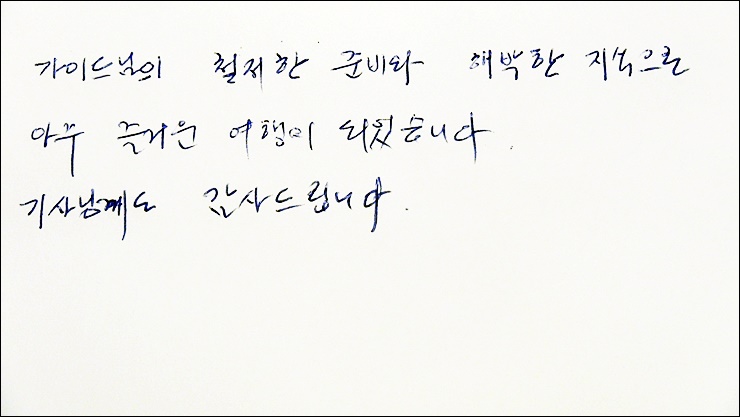 가이드님의 철저한 준비와 해박한 지식으로
아주 즐거운 여행이 되었습니다.
기사님께도 감사드립니다.